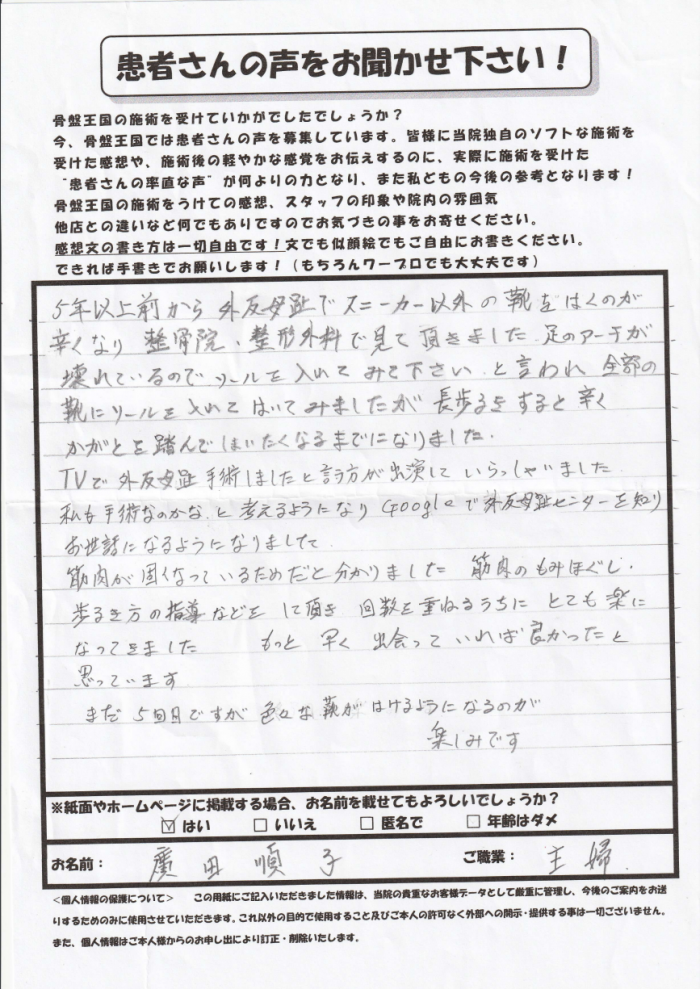 患者さんの声をお聞かせ下さい！
骨盤王国の施術を受けていかがでしたでしょうか？
今、骨盤王国では患者さんの声を募集しています。皆様に当院独自のソフトな施術を
受けた感想や、施術後の軽やかな感覚をお伝えするのに、実際に施術を受けた
"患者さんの率直な声"が何よりの力となり、また私どもの今後の参考となります！
骨盤王国の施術をうけての感想、スタッフの印象や院内の雰囲気
他店との違いなど何でもありですのでお気づきの事をお寄せください。
感想文の書き方は一切自由です！文でも似顔絵でもご自由にお書きください。
できれば手書きでお願いします！（もちろんワープロでも大丈夫です）
5年以上前から 外反母趾でスニーカー以外の靴をはくのが
辛くなり 整骨院、整形外科で見て頂きました 足のアーチが
壊れているのでソールを入れてみて下さい と言われ 全部の
靴にソールを入れてはいてみましたが 長歩きをすると辛く
かがとを踏んではいたくなるまでになりました.
TVで外反母趾手術しましたと言う方が出演していらっしゃいました
私も手術なのかな と考えるようになり Googleで外反母趾センターを知り
お世話になるようになりまして
筋肉が固くなっているためだと分かりました 筋肉のもみほぐし.
歩き方の指導などをして頂き 回数を重ねるうちに とても楽に
なってきました もっと早く出会っていれば良かったと
思っています
まだ5回目ですが色々な靴がはけるようになるのが
楽しみです
※紙面やホームページに掲載する場合、お名前を載せてもよろしいでしょうか？
☑ はい □ いいえ □ 匿名で □ 年齢はダメ
お名前： 廣田 順子 ご職業： 主婦
＜個人情報の保護について＞ この用紙にご記入いただきました情報は、当院の貴重なお客様データとして厳重に管理し、今後のご案内をお送
りするためのみに使用させていただきます。これ以外の目的で使用すること及びご本人の許可なく外部への開示・提供する事は一切ございません。
また、個人情報はご本人様からのお申し出により訂正・削除いたします。